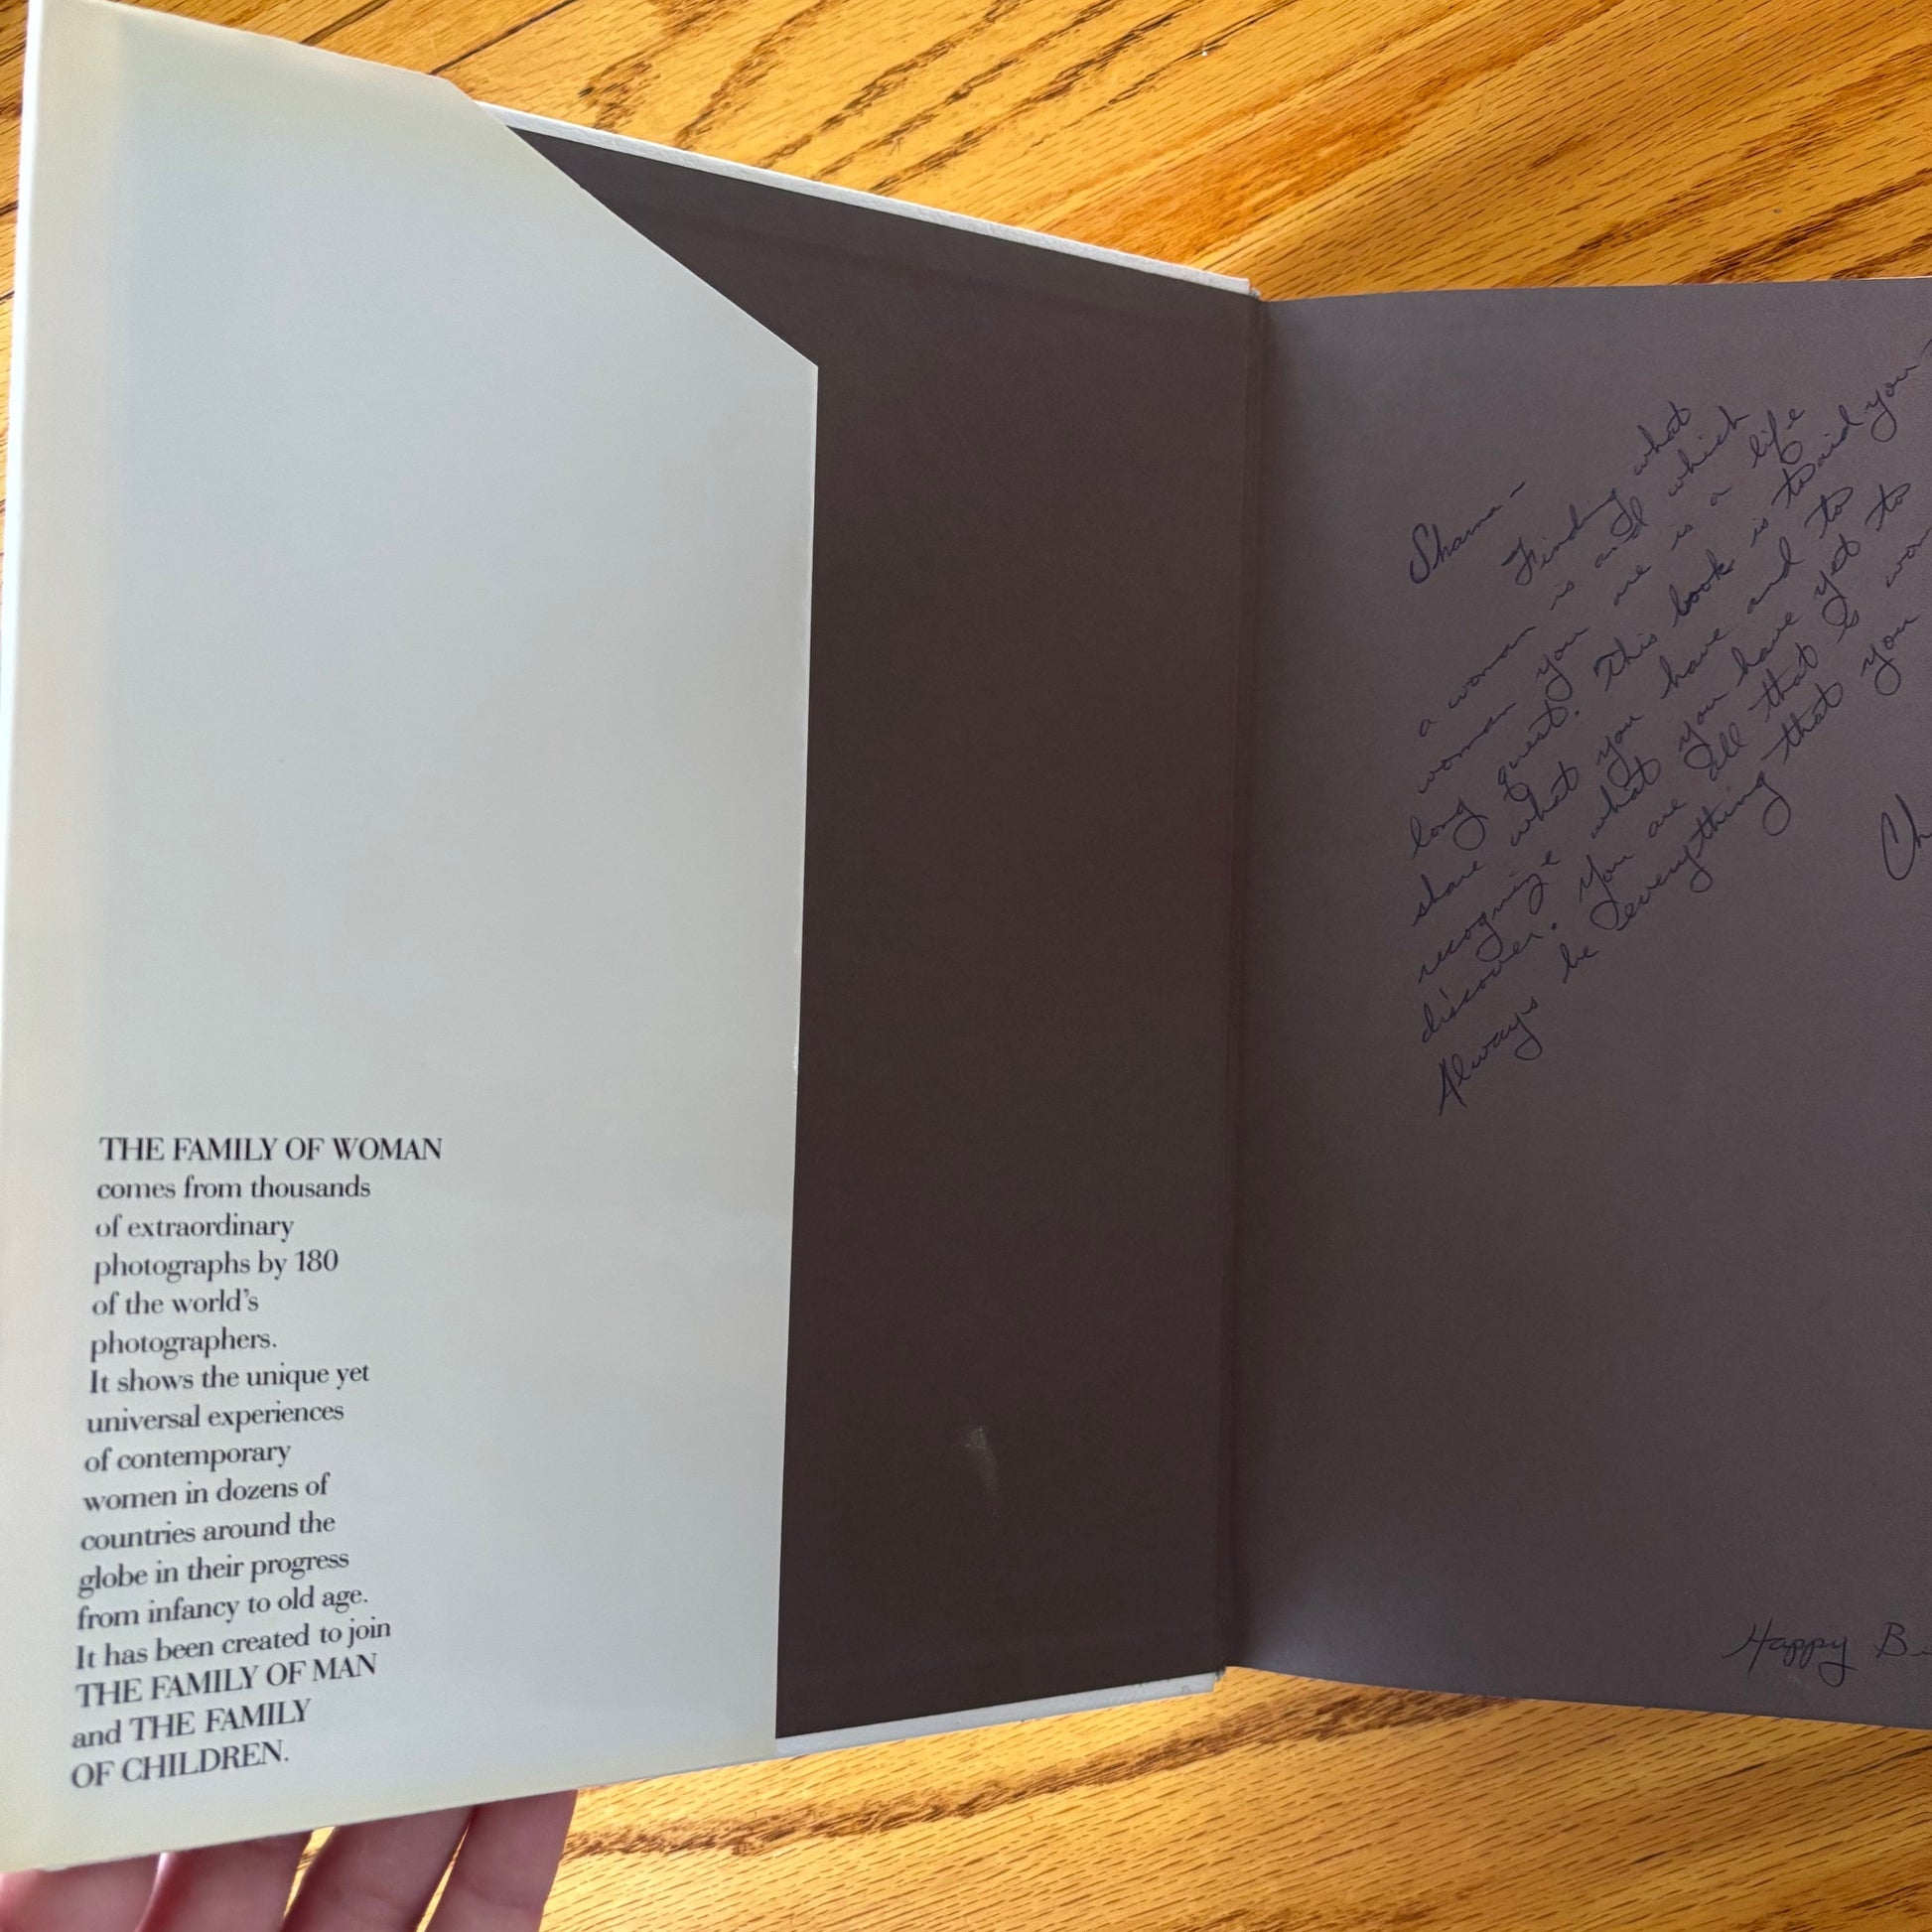 THE FAMILY OF WOMAN
comes from thousands
of extraordinary
photographs by 180
of the world's
photographers.
It shows the unique yet
universal experiences
of contemporary
women in dozens of
countries around the
globe in their progress
from infancy to old age.
It has been created to join
THE FAMILY OF MAN
and THE FAMILY
OF CHILDREN.
Finding what
a woman is and which
woman you are is a life
long quest. This book is to aid you
share what you have and to
recognize what you have yet to
discover. You are all that is
Always be everything that you
Happy